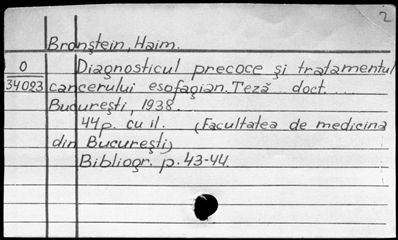 2
Bronştein, Haim.
O Diagnosticul precoce şi tratamentul
34023 cancerului esofagian. Teză doct....
Bucureşti, 1938.
44p. cu il. (Facultatea de medicina
din Bucureşti)
Bibliogr. p. 43-44.